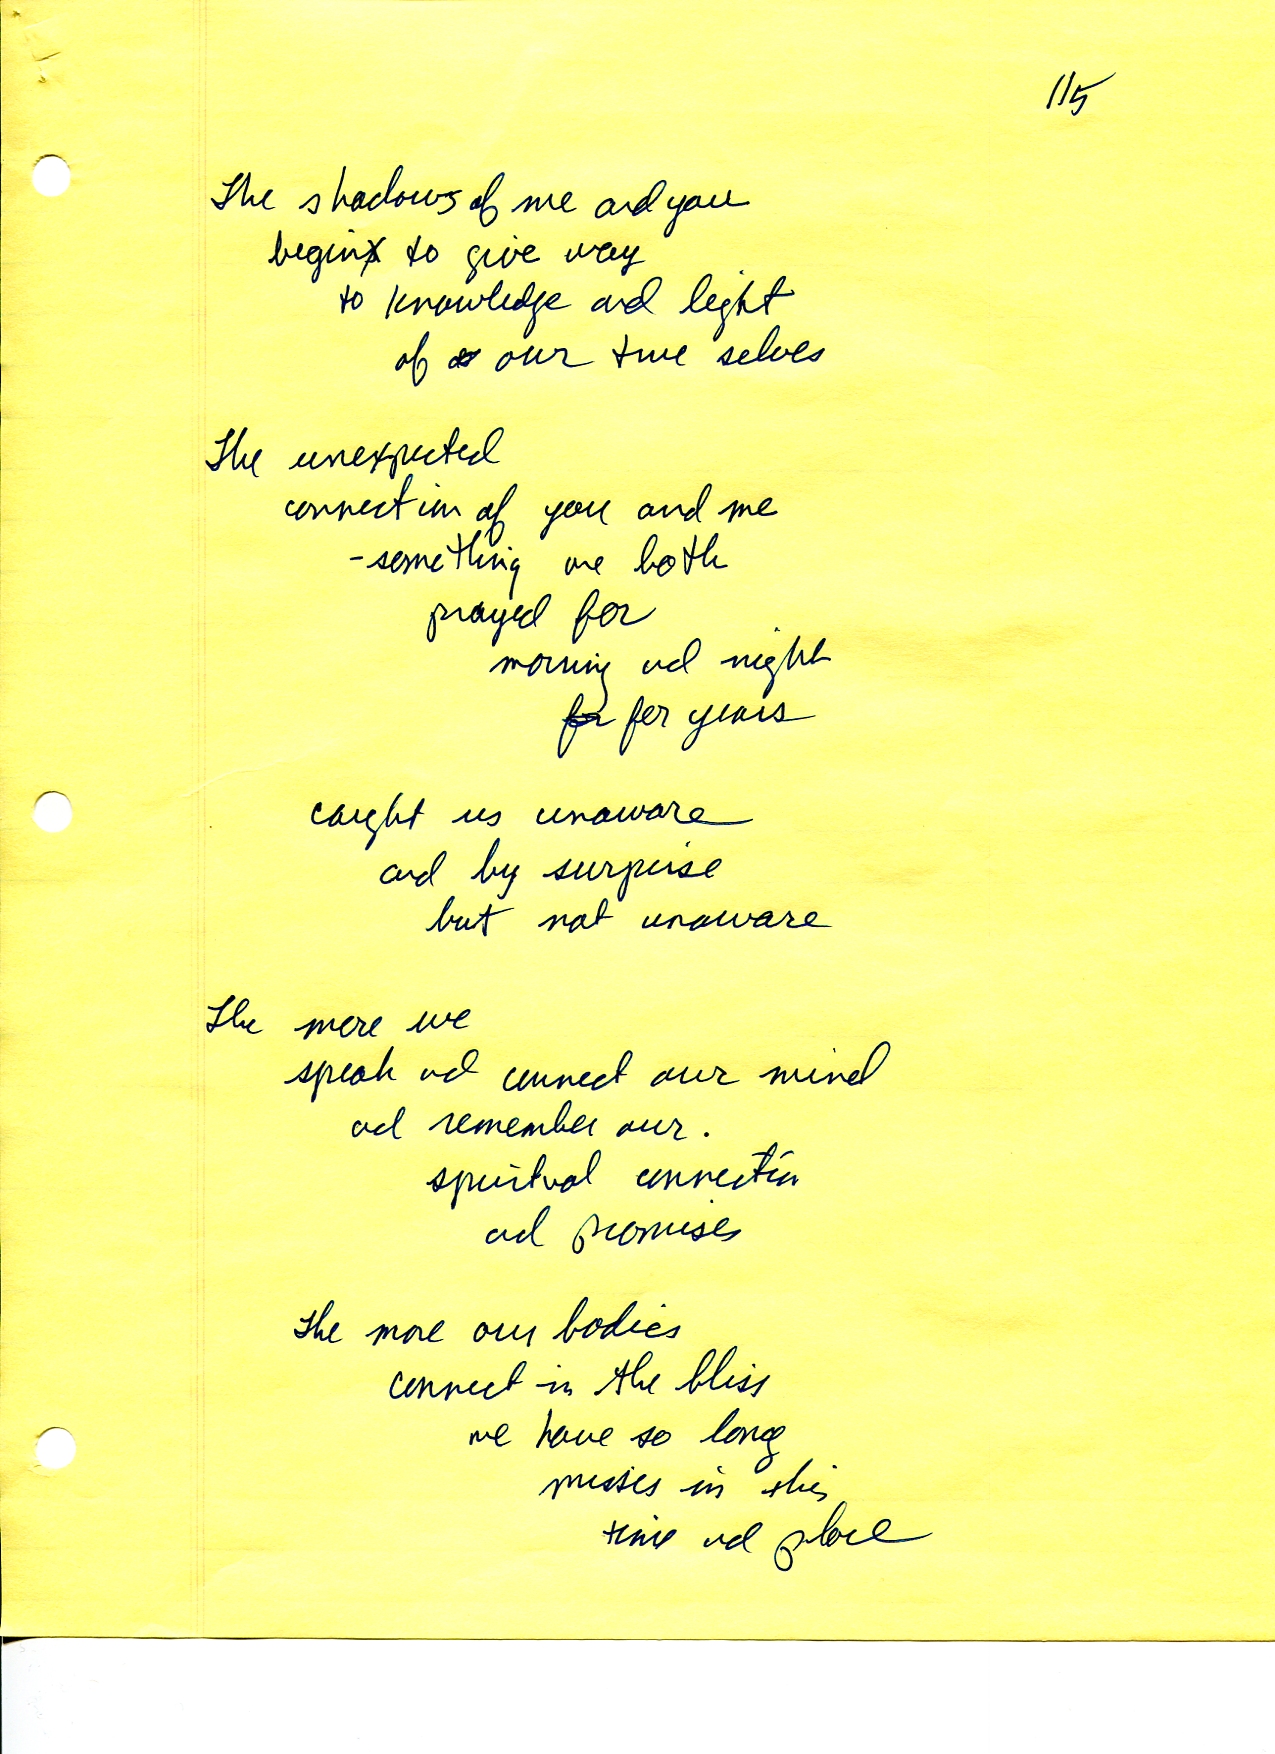 115
The shadows of me and you
begin to give way
to knowledge and light
of our true selves
The unexpected
connection of you and me
- something we both
prayed for
morning and night
for years
caught us unaware
and by surprise
but not unaware
The more we
speak and connect our mind
and remember our.
spiritual connection
and promises
the more our bodies
connect in the bliss
we have so long
in this
time and place